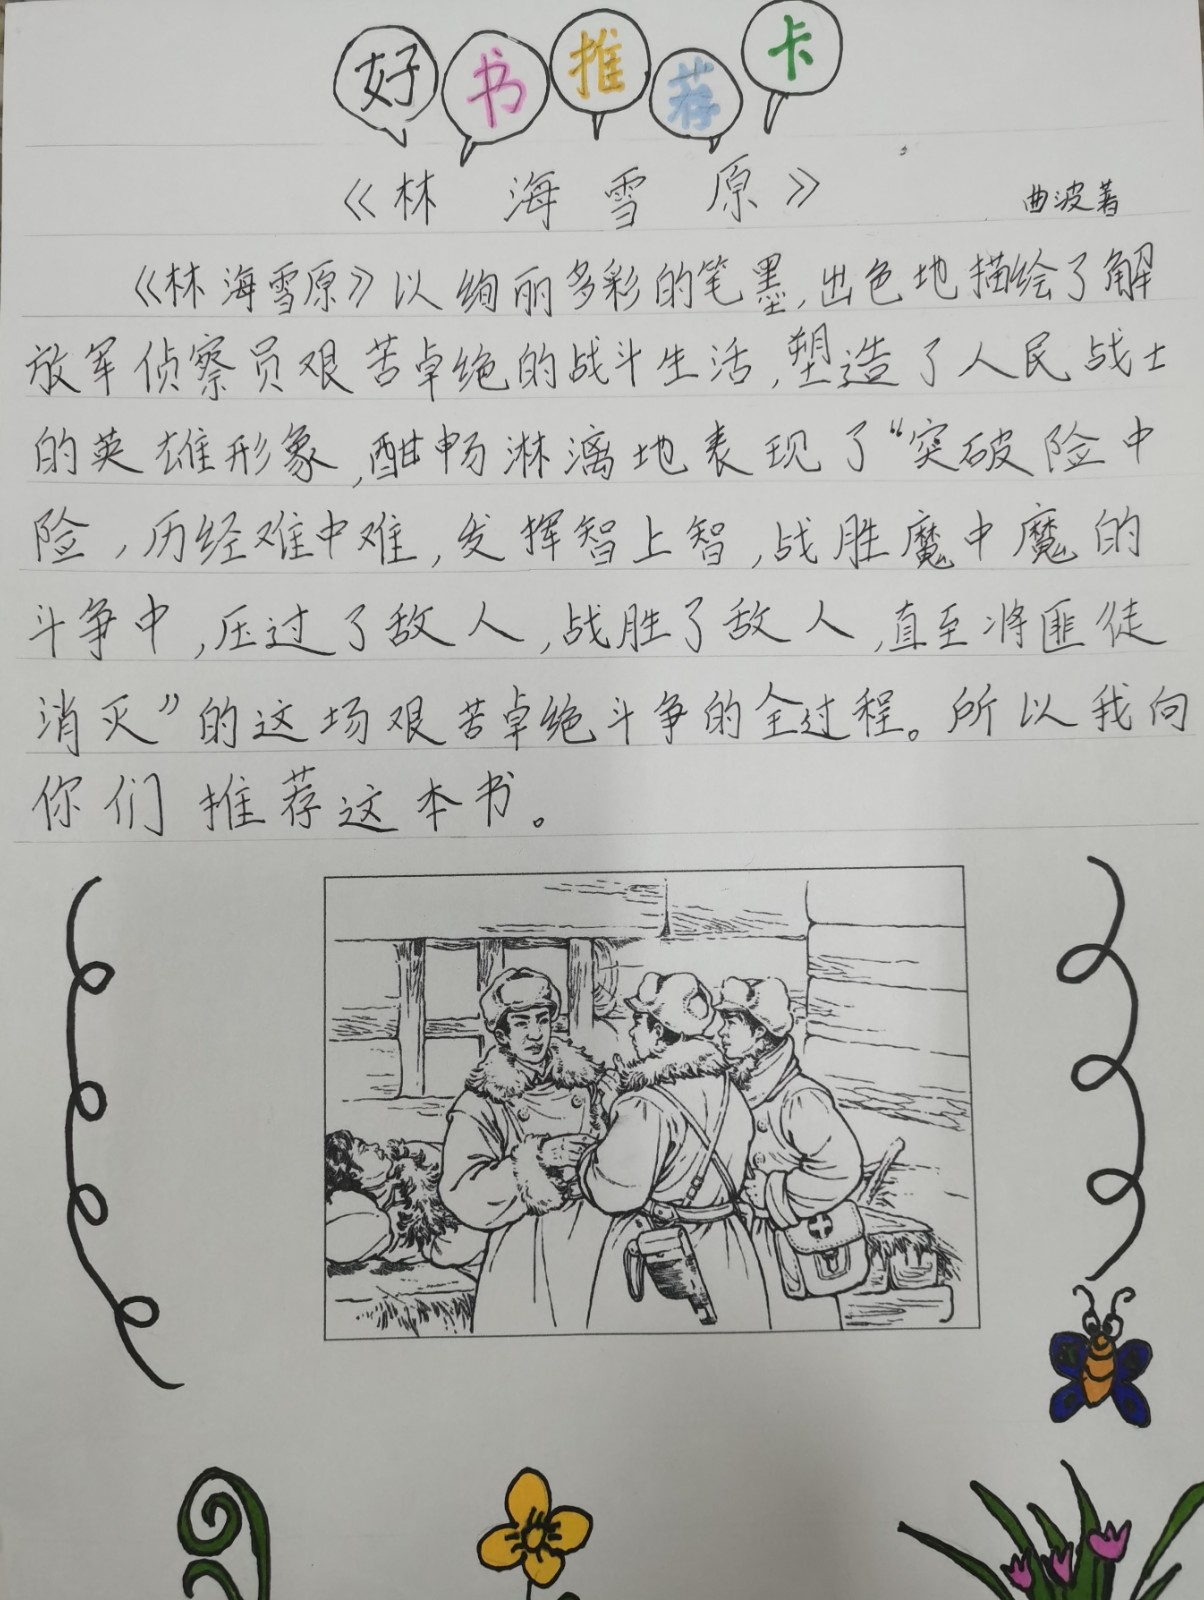 好书推荐卡
《林海雪原》 曲波著
《林海雪原》以绚丽多彩的笔墨,出色地描绘了解
放军侦察员艰苦卓绝的战斗生活,塑造了人民战士
的英雄形象,酣畅淋漓地表现了“突破险中
险,历经难中难,发挥智上智,战胜魔中魔的
斗争中,压过了敌人,战胜了敌人,直至将匪徒
消灭”的这场艰苦卓绝斗争的全过程。所以我向
你们推荐这本书。